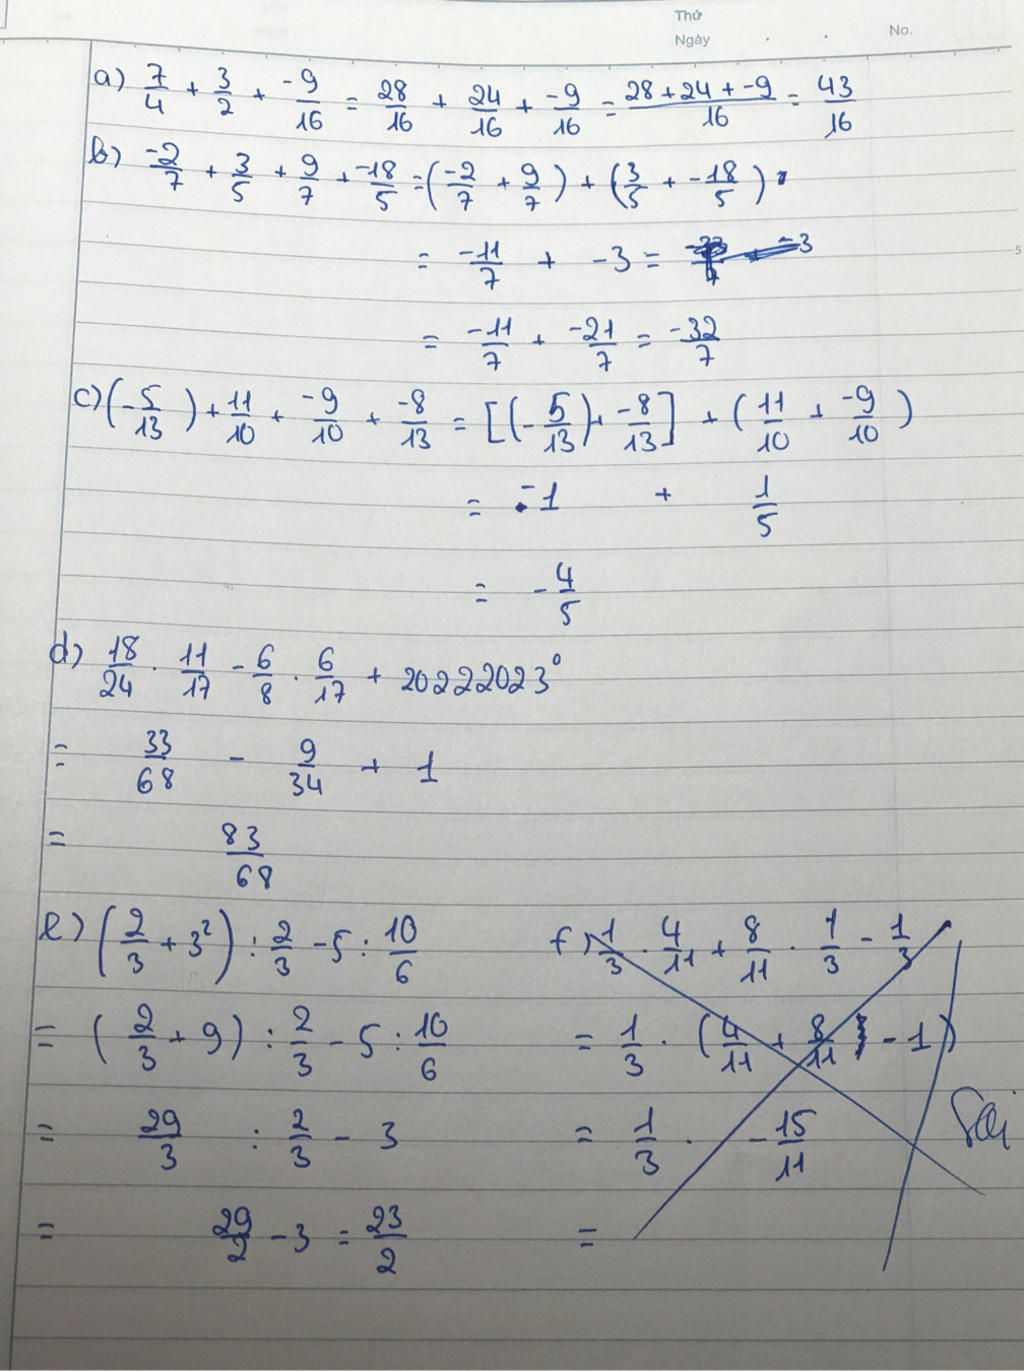 Thứ
Ngày . . No.
a) 7/4 + 3/2 + -9/16 = 28/16 + 24/16 + -9/16 = 28+24+-9/16 = 43/16
b) -2/7 + 3/5 + 9/7 + -18/5 = (-2/7 + 9/7) + (3/5 + -18/5)
= -11/7 + -3 =
= -11/7 + -21/7 = -32/7
c) (-5/13) + 11/10 + -9/10 + -8/13 = [(-5/13) + -8/13] + (11/10 + -9/10)
= -1 + 1/5
= -4/5
d) 18/24 . 11/17 - 6/8 . 6/17 + 20222023⁰
= 33/68 - 9/34 + 1
= 83/68
e) (2/3 + 3²) : 2/3 - 5 : 10/6
= (2/3 + 9) : 2/3 - 5 : 10/6
= 29/3 : 2/3 - 3
= 29/2 - 3 = 23/2
f) 1/3 . 4/11 + 8/11 . 1/3 - 1/3
= 1/3 . (4/11 + 8/11 - 1)
= 1/3 . -15/11
=
Sai